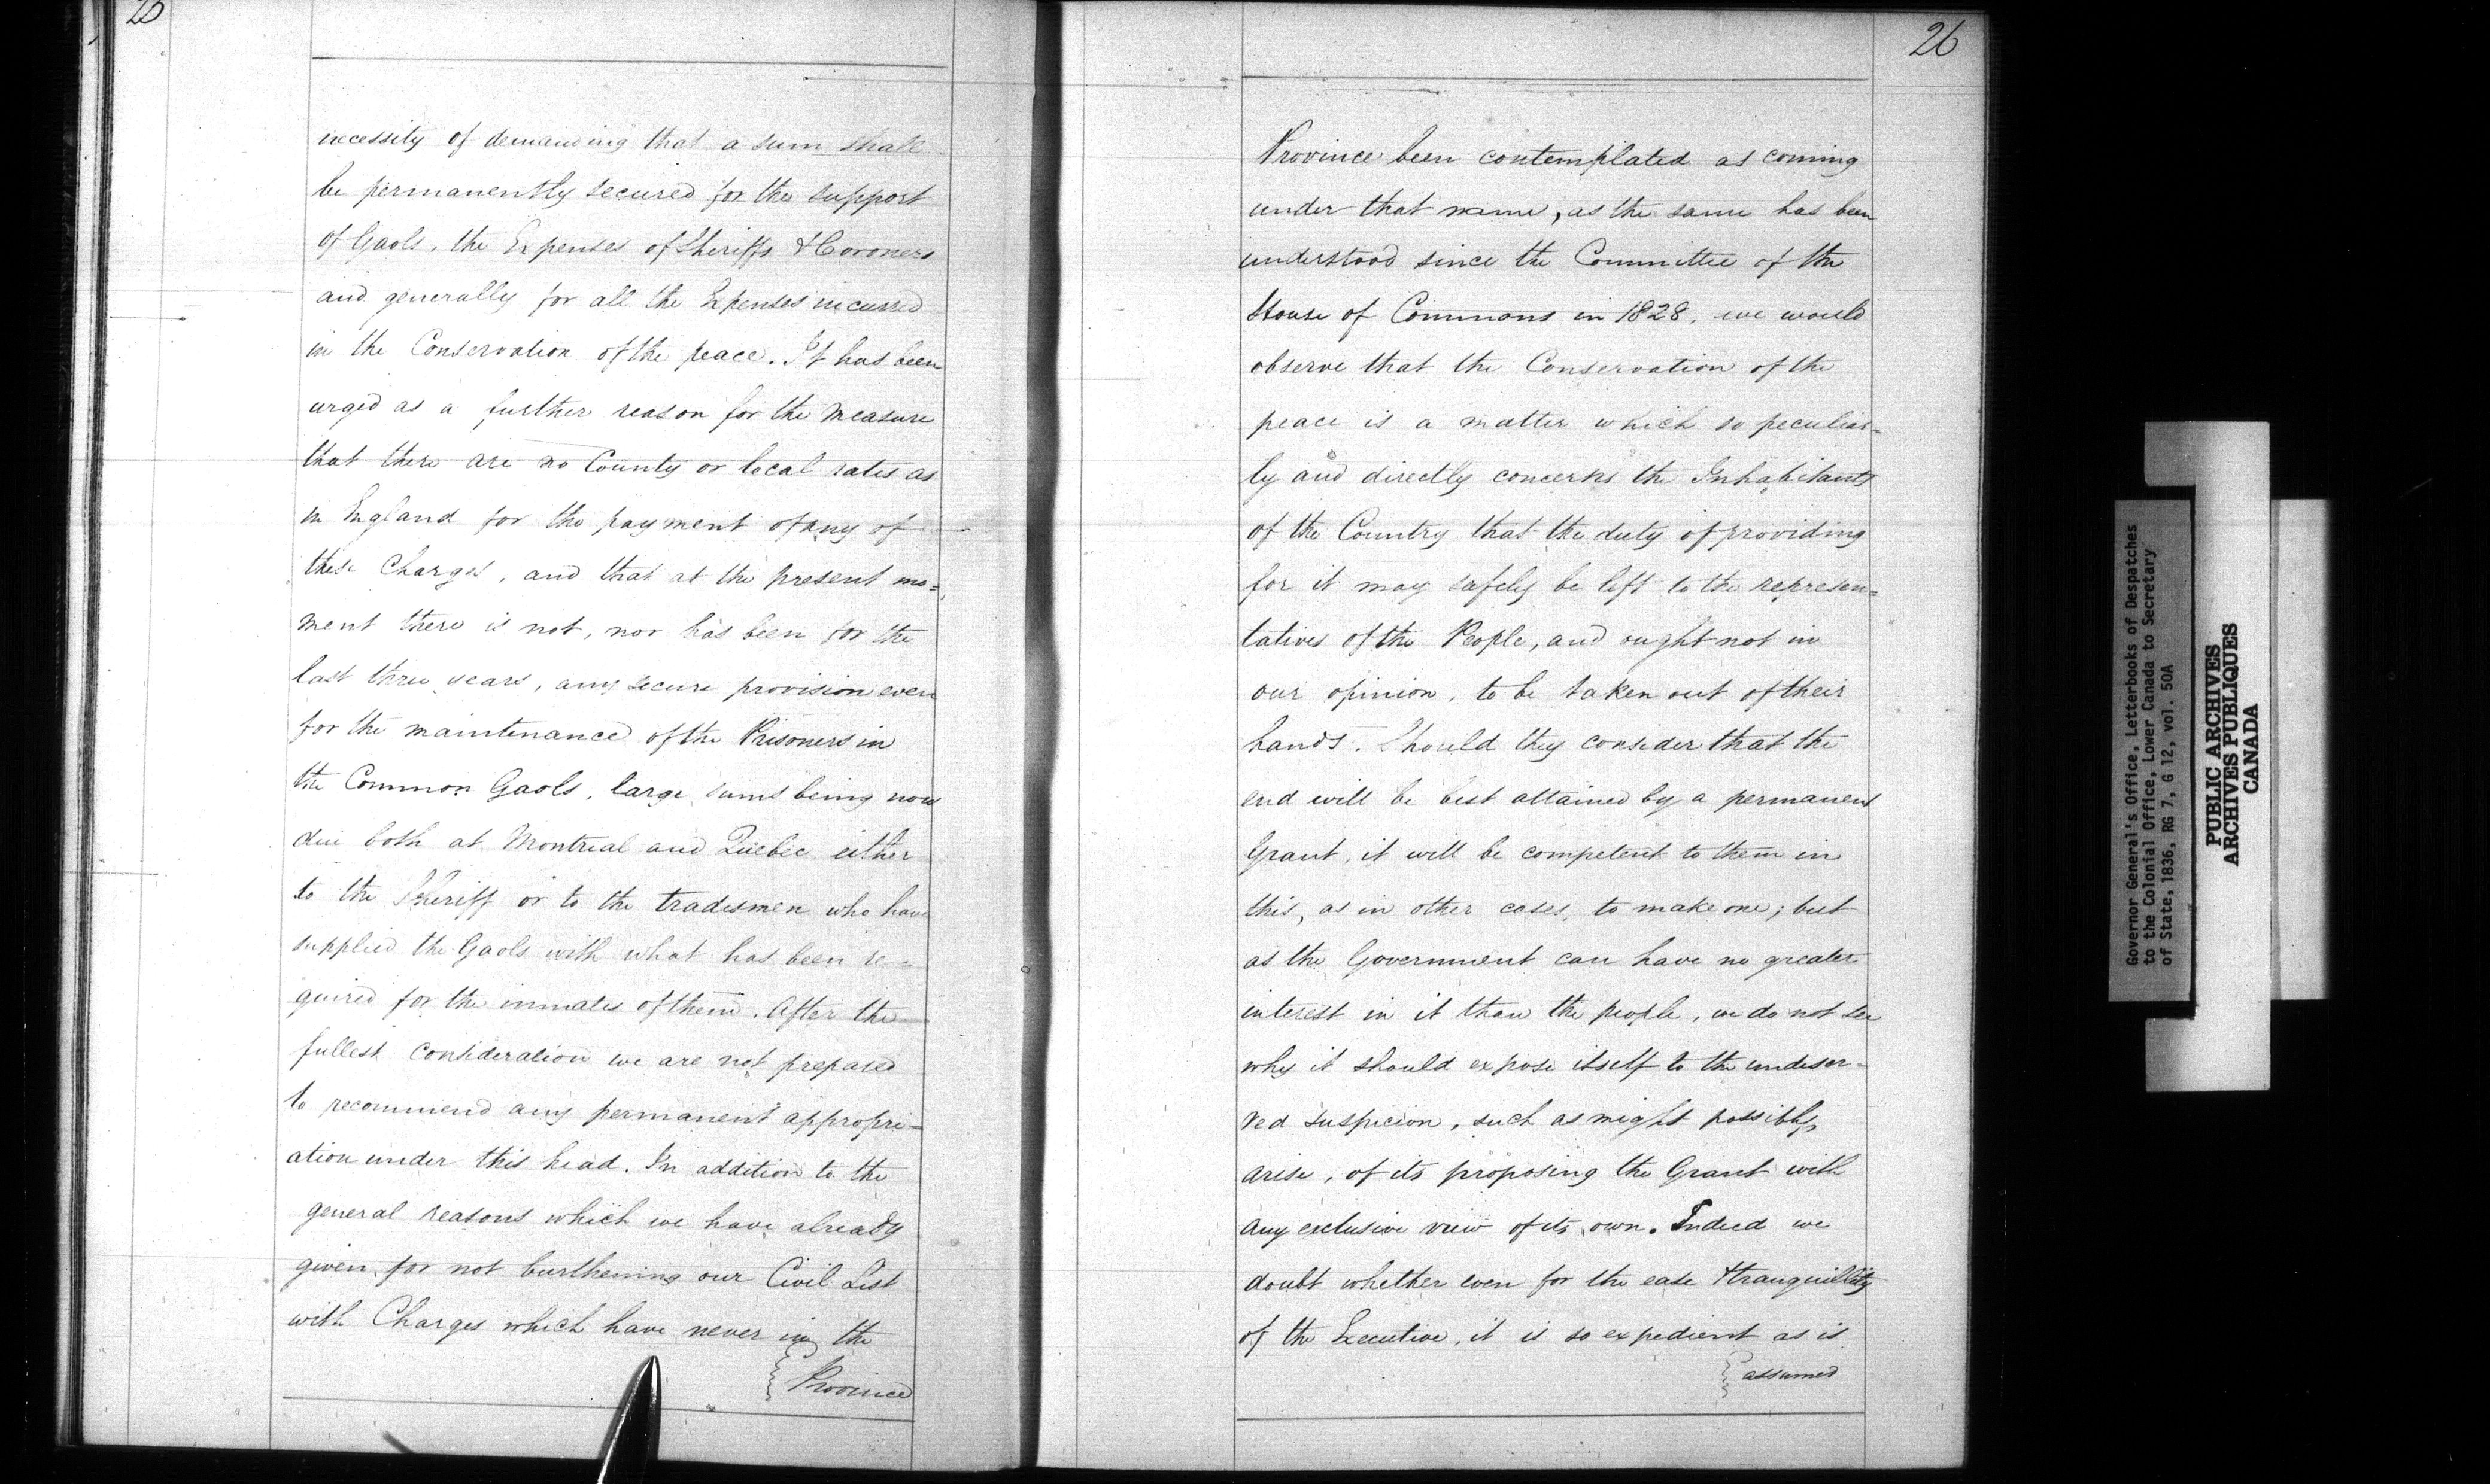 necessity of demanding that a sum shall
be permanently secured for the support
of Gaols, the Expenses of Sheriffs & Coroners
and generally for all the Expenses incurred
in the Conservation of the peace. It has been
urged as a further reason for the measure
that there are no County or local rates as
in England for the payment of any of
these Charges, and that at the present mo=
ment there is not, nor has been for the
last three years, any secure provision even
for the maintenance of the Prisoners in
the Common Gaols, large sums being now
due both at Montreal and Quebec either
to the Sheriff or to the tradesmen who have
supplied the Gaols with what has been re=
quired for the inmates of them. After the
fullest consideration we are not prepared
to recommend any permanent appropri=
ation under this head. In addition to the
general reasons which we have already
given for not burthening our Civil List
with Charges which have never in the
Province
26
Province been contemplated as coming
under that name, as the same has been
understood since the Committee of the
House of Commons in 1828, we would
observe that the Conservation of the
peace is a matter which so peculiar=
ly and directly concerns the Inhabitants
of the Country that the duty of providing
for it may safely be left to the represen=
tatives of the People, and ought not in
our opinion, to be taken out of their
hands. Should they consider that the
end will be best attained by a permanent
Grant, it will be competent to them in
this, as in other cases, to make one; but
as the Government can have no greater
interest in it than the people, we do not see
why it should expose itself to the undeser=
ved suspicion, such as might possibly
arise, of its proposing the Grant with
any exclusive view of its own. Indeed we
doubt whether even for the ease & tranquillity
of the Executive, it is so expedient as is
assumed
Governor General's Office, Letterbooks of Despatches
to the Colonial Office, Lower Canada to Secretary
of State, 1836, RG 7, G 12, vol. 50A
PUBLIC ARCHIVES
ARCHIVES PUBLIQUES
CANADA